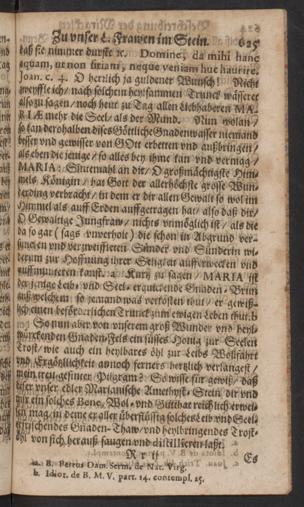 Zu unser L. Frawen im Stein. 625
daß sie nimmer durste ꝛc. Domine, da mihi hanc
aquam, ut non sitiam, neque veniam huc haurire.
Joan. c. 4. O herzlich ja guldener Wunsch! Nicht
zweyffle ich / nach solchem heylsammen Trunck wässeret
also zu sagen / noch heut zu Tag allen Liebhaberen MA-
RIÆ mehr die Seel / als der Mund. Nun wolan /
so kan derohalben dises Göttliche Gnadenwasser niemand
besser und gewisser von GOtt erbetten und außbringen /
als eben die jenige / so alles bey ihme kan und vermag /
MARIA: Sintemahl an dir / O großmächtigste Him-
mels Königin / hat Gott der allerhöchste grosse Wun-
derding verbracht / in dem er dir allen Gewalt so wol im
Himmel als auff Erden auffgetragen hat / also daß dir /
O Gewaltige Jungfraw / nichts unmöglich ist / als die
da so gar (sags unverholt) die schon in Abgrund ver-
und verzweiffleten Sünder und Sünderin wi-
derum zur Hoffnung ihrer Seligkeit aufferwecken und
auffmunteren kanst. a. Kurz zu sagen / MARIA ist
der jenige Leib- und Seel- erquickende Gnaden- Brun
auß welchem / so jemand was verkosten thut / er gewiß-
lich einen beförderlichen Trunck zum ewigen Leben thut. b
So nun aber von unserem groß Wunder und heyl-
würckenden Gnaden-Fels ein süsses Honig zur Seelen
Trost / wie auch ein heylbares öhl zur Leibs Wolfahrt
und Ergötzlichkeit annoch ferners herzlich verlangest /
mein treu-gesinter Pilgram? So wisse für gewiß / daß
diser unser edler Marianische Amethyst- Stein dir und
mir ein solches Hönig- Wol- und Gutthat reichlich erwei-
sen mag, in deme er aller überflüssig solches Leib und Seel-
erfrischendes Gnaden- Thaw und heylbringendes Trost-
öhl von sich herauß saugen und distilliren laßt.
R r ij Es
a. B. Petrus Dam. Serm. de Nat. Virg.
b. Idiot. de B. M. V. part. 14. contempl. 25.